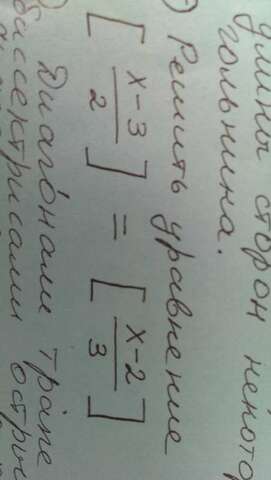 длины сторон некотор
гольника.
) Решить уравнение
[(x-3)/2] = [(x-2)/3]
Диагонали трапе
биссектрисами остры